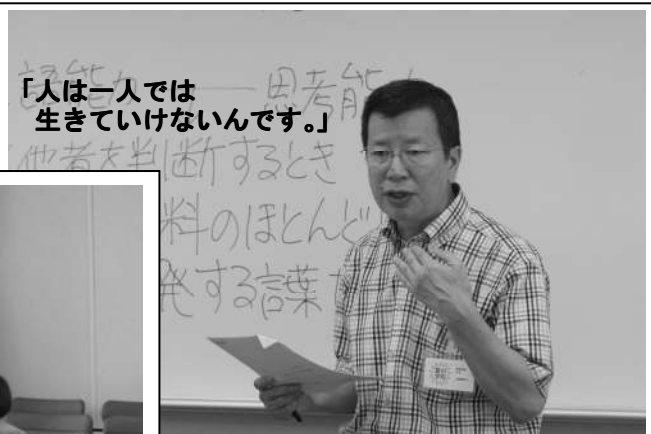 「人は一人では
生きていけないんです。」
語能力――思考能
他者を判断するとき
料のほとんど
発する言葉